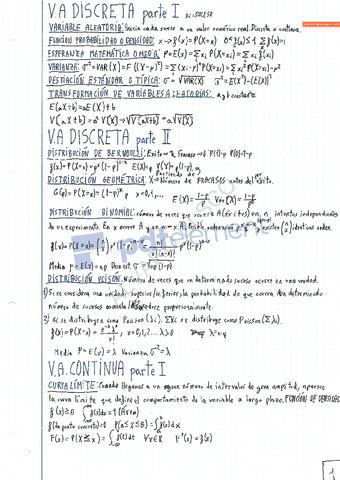 V.A DISCRETA parte I xi=SUCESO
VARIABLE ALEATORIA: Asocia cada suceso a un valor numérico real. Discreta o continua.
FUNCIÓN PROBABILIDAD O DENSIDAD: x→f(x)=P(X=x) 0≤f(x)≤1 Σf(x)=1
ESPERANZA MATEMÁTICA O MEDIA: μ=E(x)=Σxi P(X=xi)=Σxi f(xi)
VARIANZA: σ²=VAR(X)=E((X-μ)²)=Σ(xi-μ)²P(X=xi)=Σxi²P(X=xi)-μ²
DESVIACIÓN ESTÁNDAR O TÍPICA: σ=√VAR(X) σ²=E(X²)-(E(X))²
TRANSFORMACIÓN DE VARIABLES ALEATORIAS: a,b constantes
E(aX+b)=aE(X)+b
V(aX+b)=a²V(X)→√V(aX+b)=a√V(X)
V.A DISCRETA parte II
DISTRIBUCIÓN DE BERNOULLI: Éxito→1, Fracaso→0 P(1)=p P(0)=1-p
f(x)=P(X=x)=pˣ(1-p)¹⁻ˣ E(x)=p V(x)=p(1-p)
DISTRIBUCIÓN GEOMÉTRICA: X→Número de FRACASOS antes del éxito.
G(p)=P(X=x)=(1-p)ˣ p x=0,1,... E(X)=(1-p)/p Var(X)=(1-p)/p²
DISTRIBUCIÓN BINOMIAL: número de veces que ocurre A (éxito) en n intentos independientes
de un experimento. En x ocurre A y en n-x
f(x)=P(X=x)=(n x)pˣ(1-p)ⁿ⁻ˣ = n!/x!(n-x)!
Media μ=E(x)=np Desv est. σ=√np(1-p)
DISTRIBUCIÓN POISSON: Número de veces que un determinado suceso ocurre en una unidad.
1) Si se considera una unidad superior/inferior, la probabilidad de que ocurra un determinado
número de sucesos aumenta/reduce proporcionalmente.
2) Xi se distribuye como Poisson(λi), ΣXi se distribuye como Poisson(Σλi)
3) f(x)=P(X=x)= x=0,1,2... λ>0
Media μ=E(x)=λ Varianza σ²=λ
V.A. CONTINUA parte I
CURVA LÍMITE: Cuando llegamos a un gran número de intervalos de poca amplitud, aparece
la curva límite que define el comportamiento de la variable a largo plazo. FUNCIÓN DE DENSIDAD
f(x)≥0 ∫f(x)dx=1 (Área)
f(un punto concreto)=0 P(a≤X≤B)=∫f(x)dx
F(x)=P(X≤x)=∫f(t)dt ∀x∈R F'(x)=f(x)
pdfelement
1